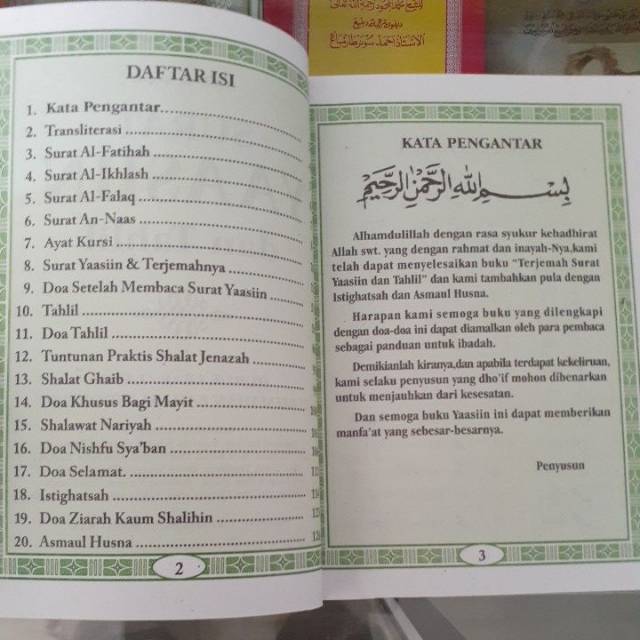 DAFTAR ISI
1. Kata Pengantar
2. Transliterasi
3. Surat Al-Fatihah
4. Surat Al-Ikhlash
5. Surat Al-Falaq
6. Surat An-Naas
7. Ayat Kursi
8. Surat Yaasiin & Terjemahnya
9. Doa Setelah Membaca Surat Yaasiin
10. Tahlil
11. Doa Tahlil
12. Tuntunan Praktis Shalat Jenazah
13. Shalat Ghaib
14. Doa Khusus Bagi Mayit
15. Shalawat Nariyah
16. Doa Nishfu Sya'ban
17. Doa Selamat.
18. Istighatsah
19. Doa Ziarah Kaum Shalihin
20. Asmaul Husna
2
KATA PENGANTAR
بسم الله الرحمن الرحيم
Alhamdulillah dengan rasa syukur kehadhirat
Allah swt. yang dengan rahmat dan inayah-Nya,kami
telah dapat menyelesaikan buku "Terjemah Surat
Yaasiin dan Tahlil" dan kami tambahkan pula dengan
Istighatsah dan Asmaul Husna.
Harapan kami semoga buku yang dilengkapi
dengan doa-doa ini dapat diamalkan oleh para pembaca
sebagai panduan untuk ibadah.
Demikianlah kiranya,dan apabila terdapat kekeliruan,
kami selaku penyusun yang dho'if mohon dibenarkan
untuk menjauhkan dari kesesatan.
Dan semoga buku Yaasiin ini dapat memberikan
manfa'at yang sebesar-besarnya.
Penyusun
3